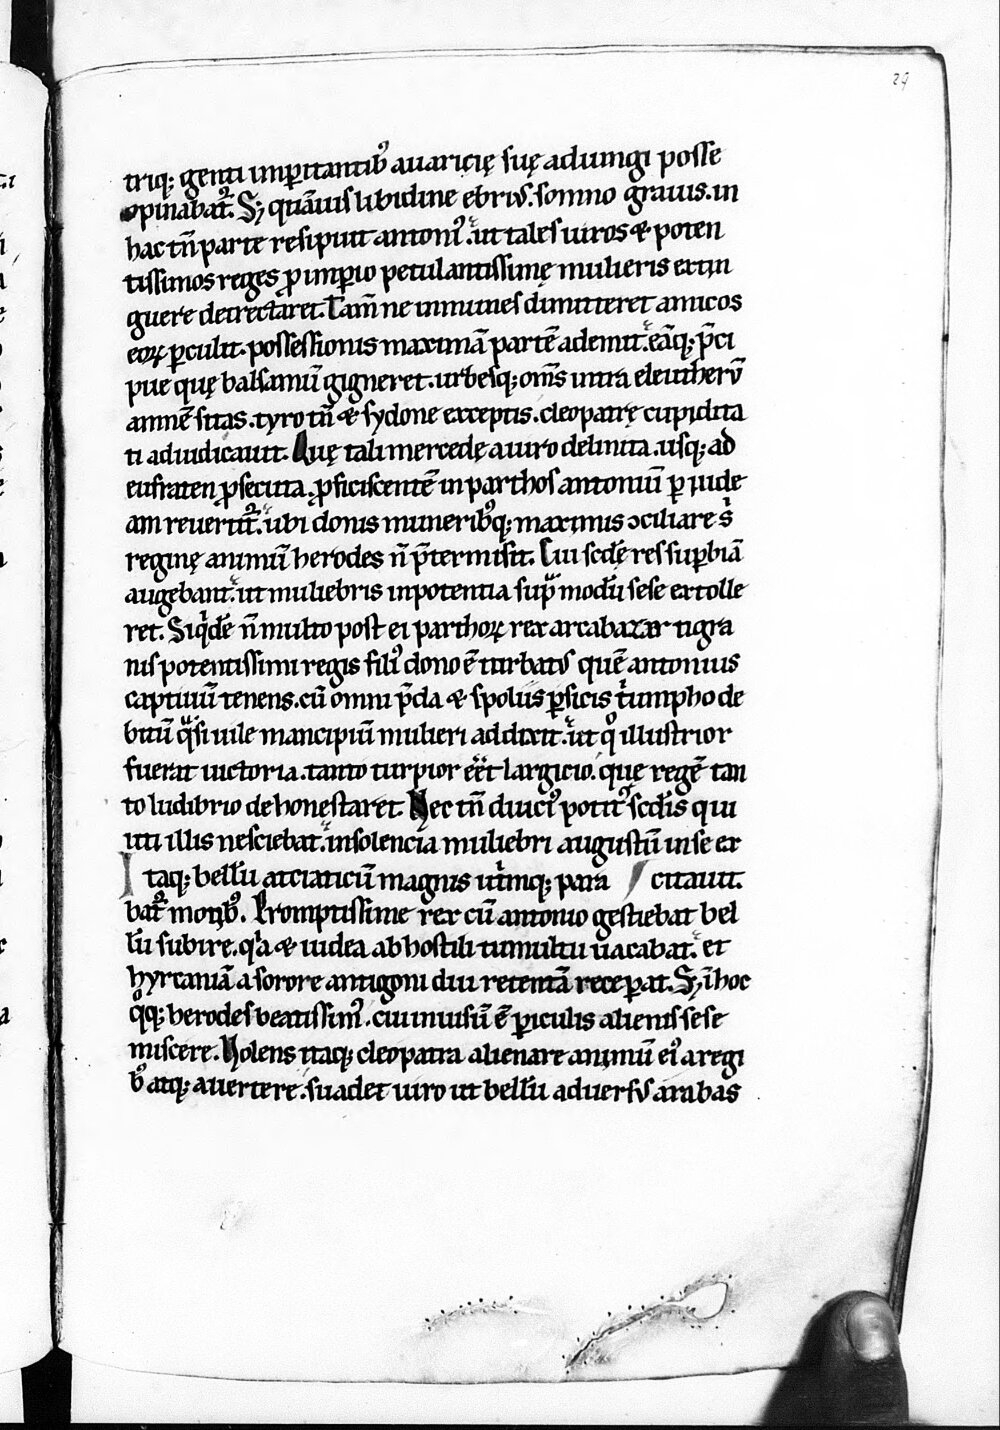 29
triq; genti imꝑitantibꝰ auaricię suę adiungi posse
opinabat᷑. Sꝫ quāuis libidine ebriꝰ. somno grauis. in
hac tn̄ parte resipuit antoniꝰ. ut tales uiros & poten
tissimos reges ꝓ imꝑio petulantissimę mulieris extin
guere detrectaret. Tam̄ ne inmunes dimitteret amicos
eoꝝ ꝑculit. possessionis maximā partē ademit. eāq; p̄ci
pue quę balsamū gigneret. urbesq; om̄s intra eleutherū
amnē sitas. tyro tn̄ & sydone exceptis. cleopatrę cupidita
ti adiudicauit. Quę tali mercede a uiro delinita. usq; ad
eufraten ꝓsecuta. ꝓficiscentē in parthos antoniū ꝑ iude
am reuertit᷑. ubi donis muneribꝰq; maximis ɔciliare s
reginę animū herodes n̄ p̄termisit. Cui scd̄e res suꝑbiā
augebant. ut muliebris inpotentia sup̄ modū sese extolle
ret. Siqͥdē n̄ multo post ei parthoꝝ rex arcabazar tigra
nis potentissimi regis filiꝰ dono ē turbatꝰ quē antonius
captiuū tenens. cū omni p̄da & spoliis ꝑsicis tͥumpho de
bitū qͣsi uile mancipiū mulieri addixit. ut qͦ illustrior
fuerat uictoria. tanto turpior eēt largicio. quę regē tan
to ludibrio dehonestaret. Nec tn̄ diuciꝰ potitꝰ scd̄is qui
uti illis nesciebat. insolencia muliebri augustū in se ex
Itaq; bellū atciaticū magnis utͥmq; para citauit.
bat᷑ motibꝰ. Promptissime rex cū antonio gestiebat bel
lū subire. qͥa & iudea ab hostili tumultu uacabat. et
hyrcaniā a sorore antigoni diu retentā receperat. Sꝫ ī hoc
qͦq; herodes beatissimꝰ. cui inuisū ē ꝑiculis alienis sese
miscere. Nolens itaq; cleopatra alienare animū eiꝰ a regi
bꝰ atq; auertere. suadet uiro ut bellū aduersꝰ arabas